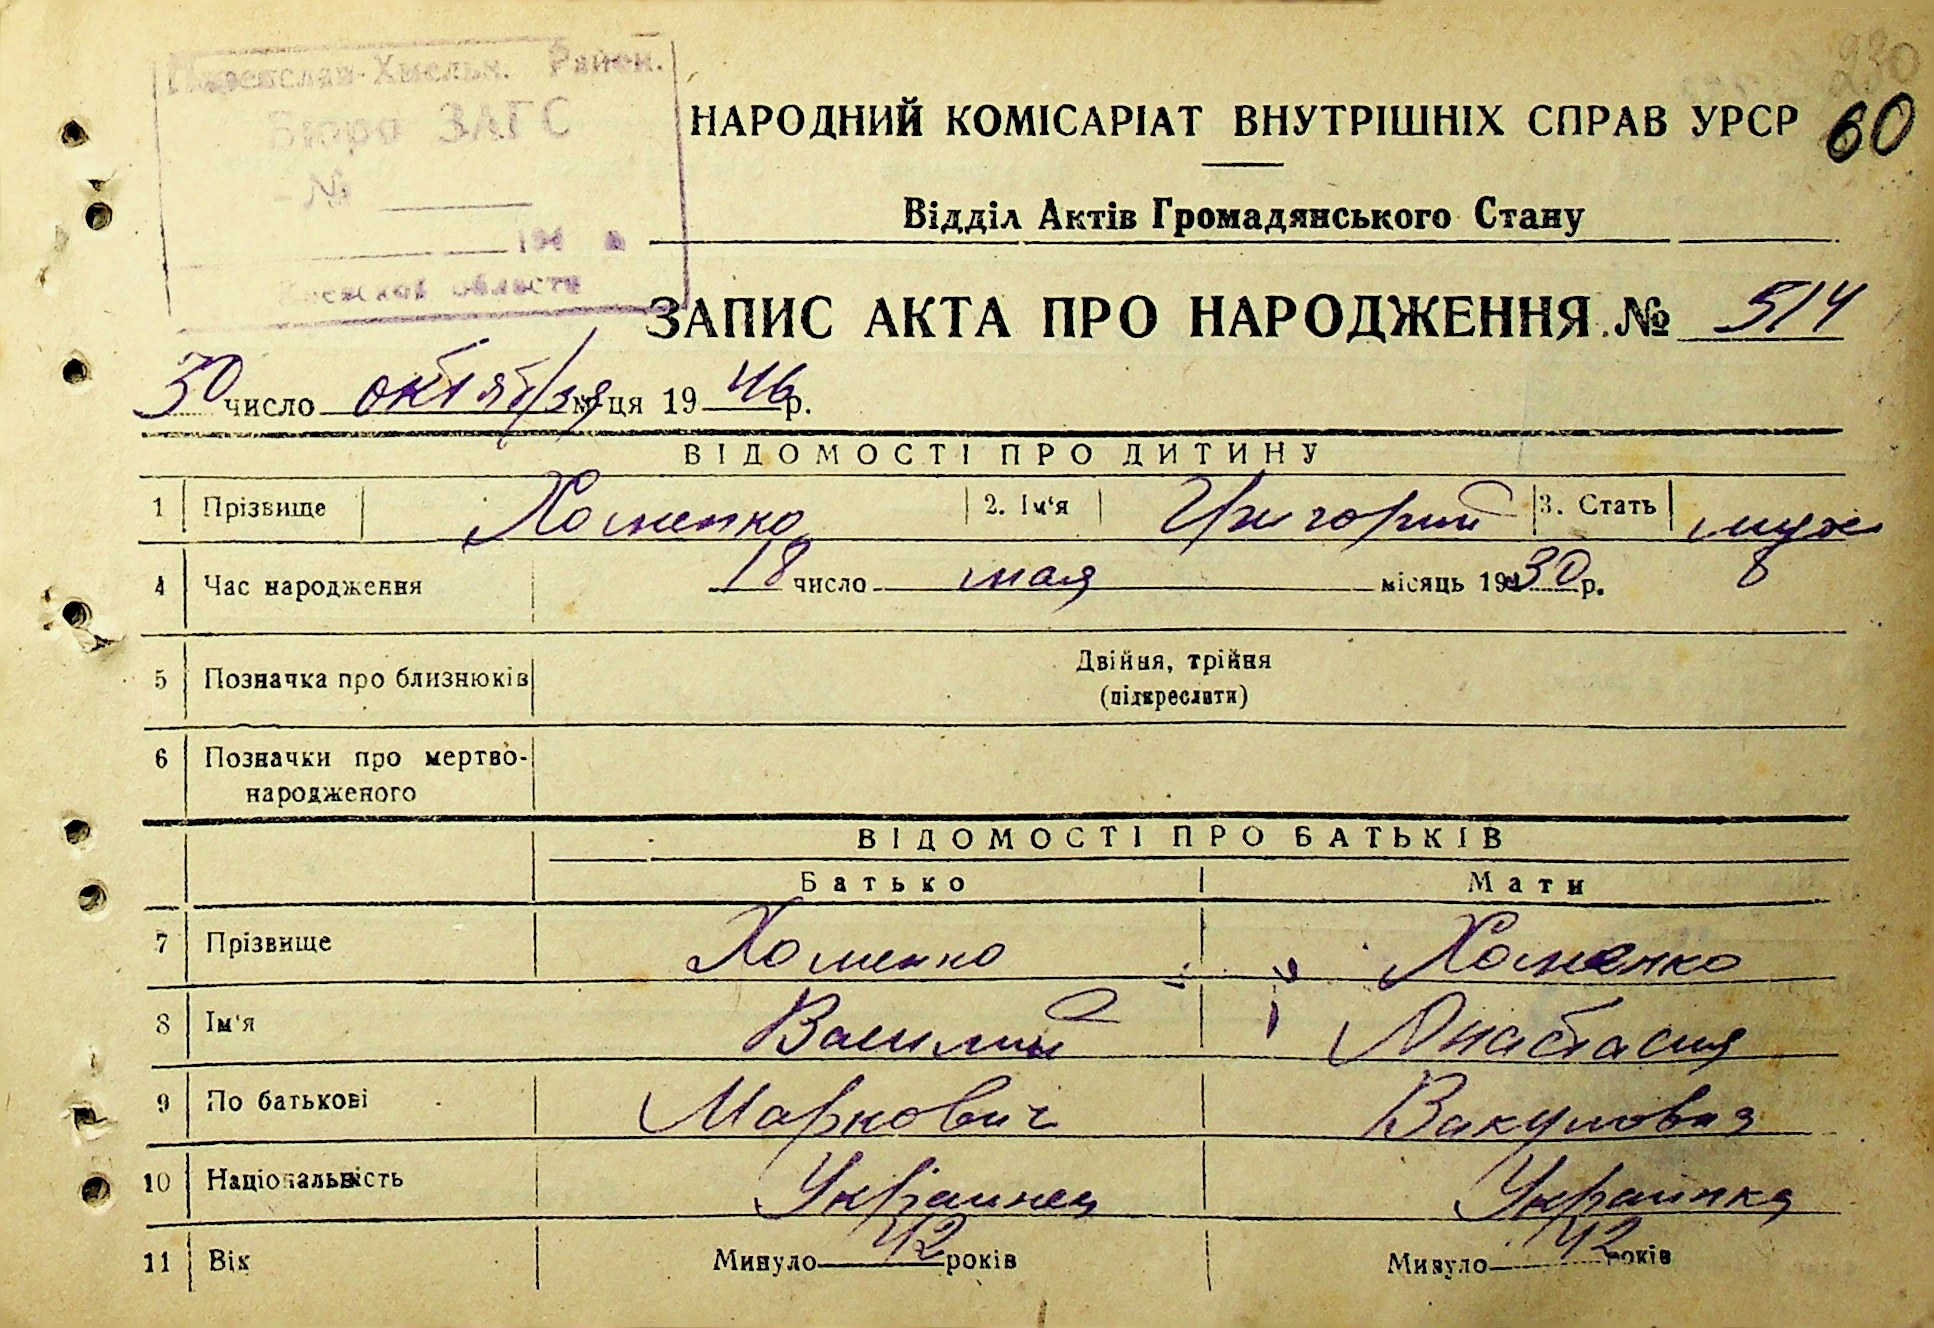 Переяслав-Хмельн. Район.
Бюро ЗАГС
№
194 г.
Киевской области
230
60
НАРОДНИЙ КОМІСАРІАТ ВНУТРІШНІХ СПРАВ УРСР
Відділ Актів Громадянського Стану
ЗАПИС АКТА ПРО НАРОДЖЕННЯ № 514
30 число октября м-ця 1946 р.
ВІДОМОСТІ ПРО ДИТИНУ
1 Прізвище Хоменко 2. Ім'я Григорий 3. Стать муж
4 Час народження 18 число мая місяць 1930 р.
5 Позначка про близнюків Двійня, трійня
(підкреслити)
6 Позначки про мертво-
народженого
ВІДОМОСТІ ПРО БАТЬКІВ
Батько Мати
7 Прізвище Хоменко Хоменко
8 Ім'я Василий Анастасия
9 По батькові Маркович Вакуловна
10 Національність Украинец Украинка
11 Вік Минуло 42 років Минуло 42 років